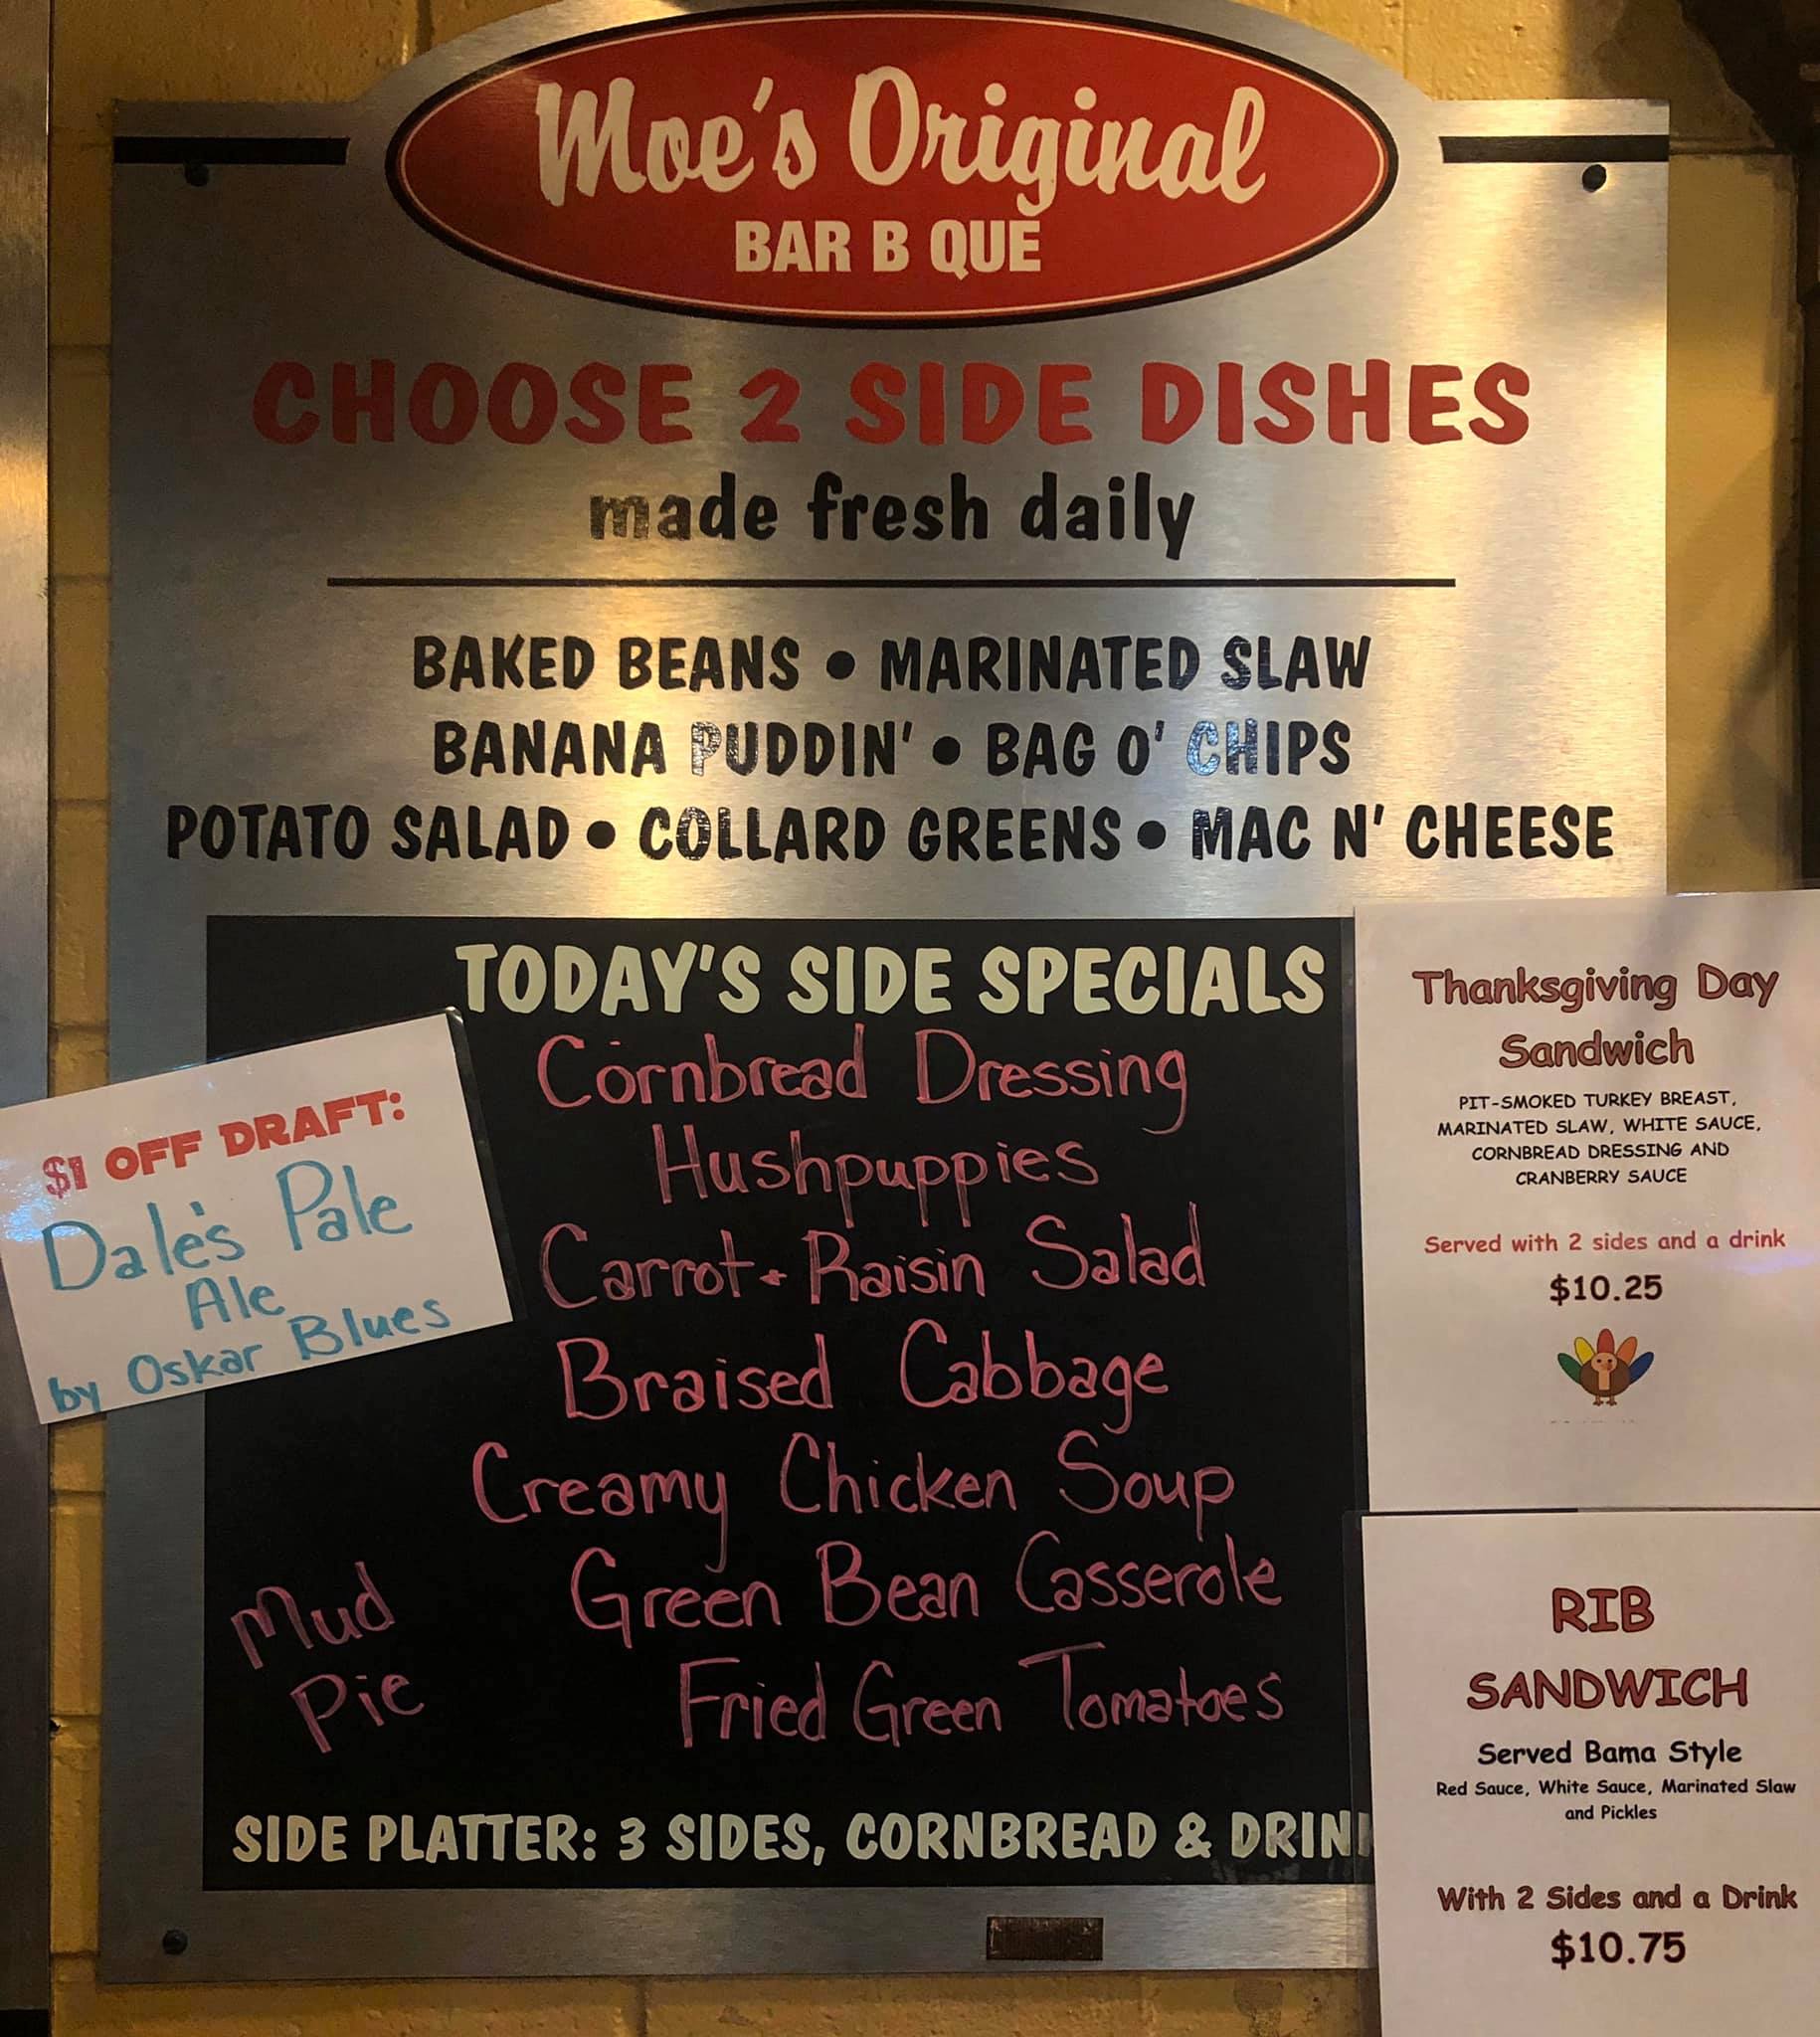 Moe's Original
BAR B QUE
CHOOSE 2 SIDE DISHES
made fresh daily
BAKED BEANS • MARINATED SLAW
BANANA PUDDIN' • BAG O' CHIPS
POTATO SALAD • COLLARD GREENS • MAC N' CHEESE
TODAY'S SIDE SPECIALS
Cornbread Dressing
Hushpuppies
Carrot + Raisin Salad
Braised Cabbage
Creamy Chicken Soup
Green Bean Casserole
Fried Green Tomatoes
Mud
Pie
SIDE PLATTER: 3 SIDES, CORNBREAD & DRIN
$1 OFF DRAFT:
Dale's Pale
Ale
by Oskar Blues
Thanksgiving Day
Sandwich
PIT-SMOKED TURKEY BREAST,
MARINATED SLAW, WHITE SAUCE,
CORNBREAD DRESSING AND
CRANBERRY SAUCE
Served with 2 sides and a drink
$10.25
RIB
SANDWICH
Served Bama Style
Red Sauce, White Sauce, Marinated Slaw
and Pickles
With 2 Sides and a Drink
$10.75